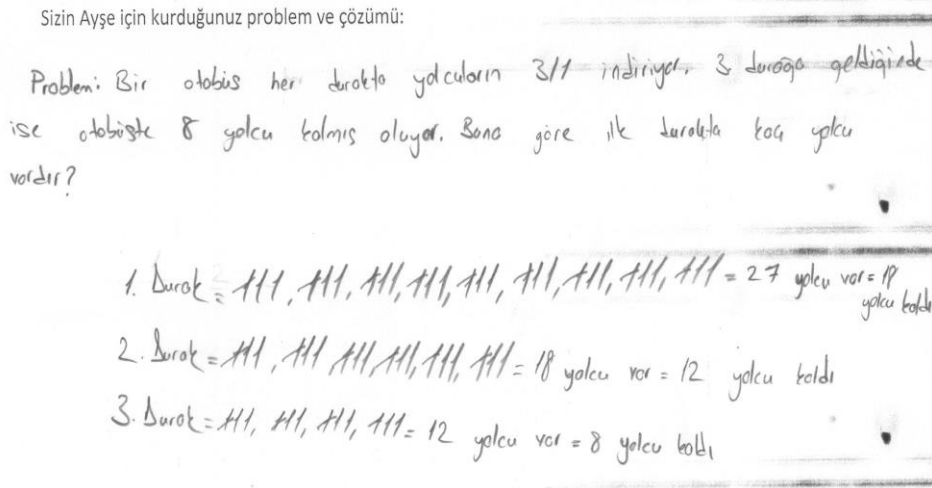 Sizin Ayşe için kurduğunuz problem ve çözümü:
Problem: Bir otobüs her durakta yolcuların 3/1 indiriyor. 3. durağa geldiğinde
ise otobüste 8 yolcu kalmış oluyor. Buna göre ilk durakta kaç yolcu
vardır?
1. Durak = 111, 111, 111, 111, 111, 111, 111, 111, 111 = 27 yolcu var = 18
yolcu kaldı
2. Durak = 111, 111 111, 111, 111, 111 = 18 yolcu var = 12 yolcu kaldı
3. Durak = 111, 111, 111, 111 = 12 yolcu var = 8 yolcu kaldı